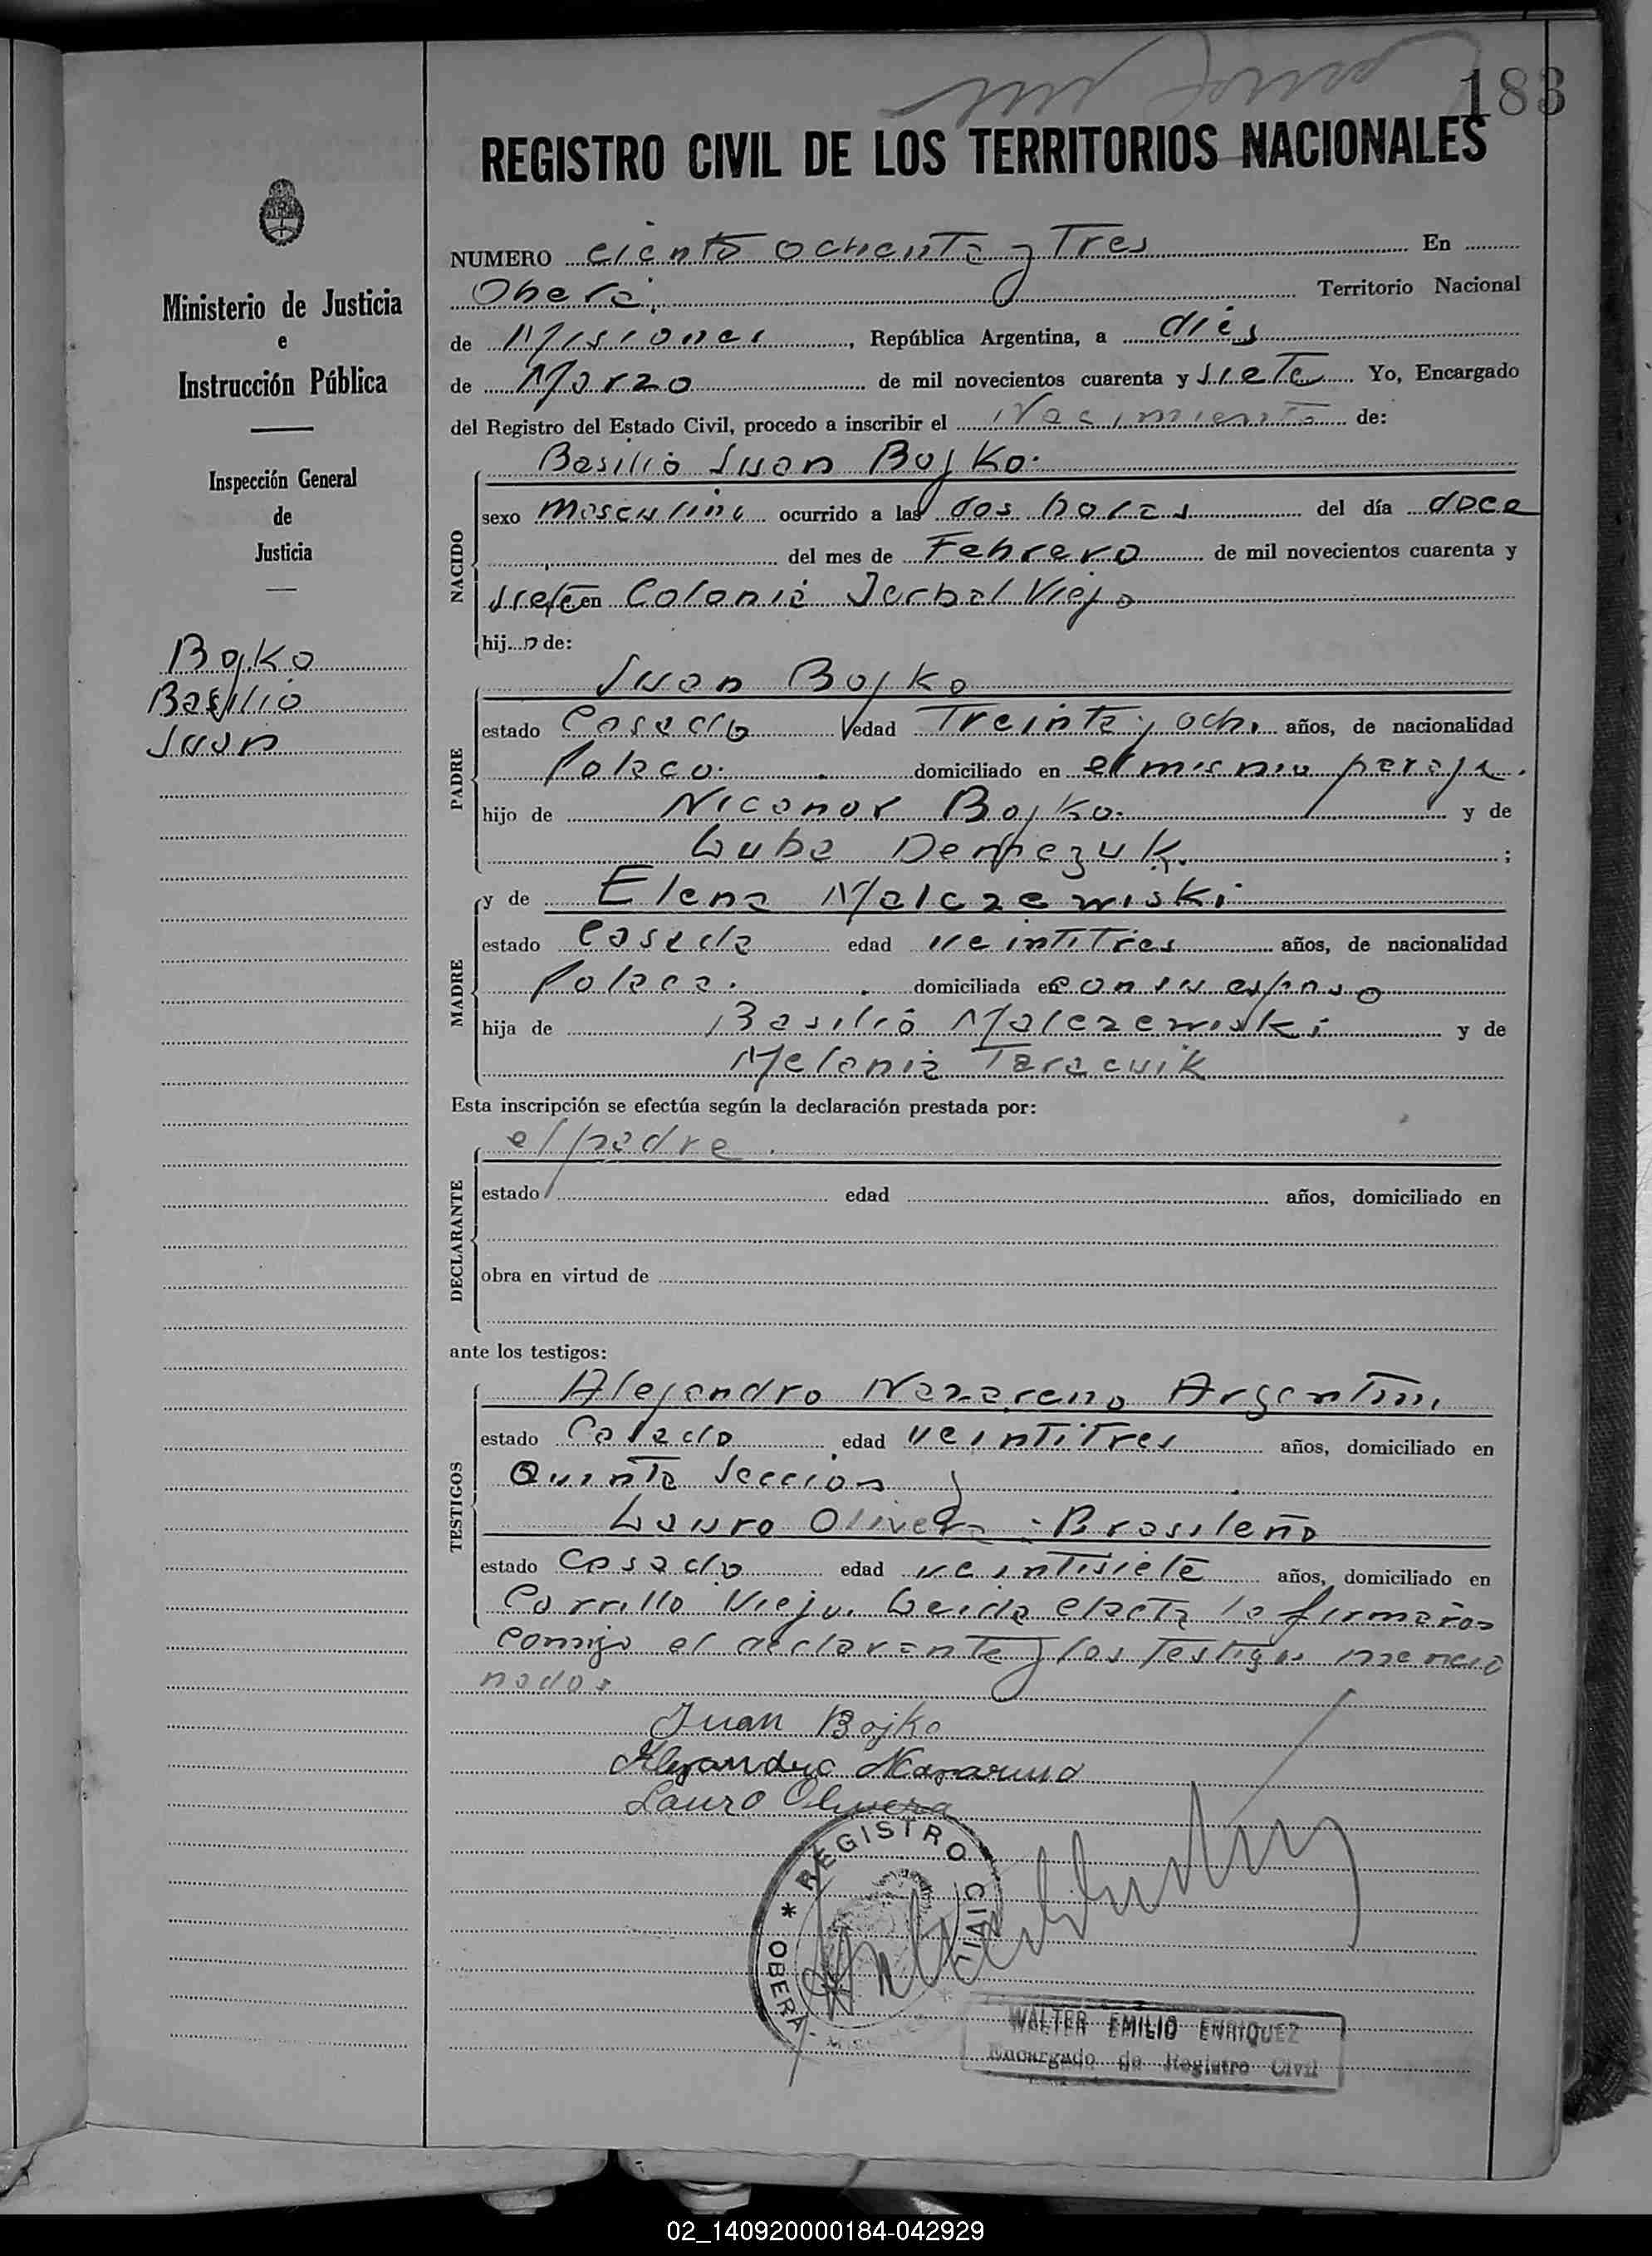 183
REGISTRO CIVIL DE LOS TERRITORIOS NACIONALES
Ministerio de Justicia
e
Instrucción Pública
Inspección General
de
Justicia
Bojko
Basilio
Juan
NUMERO ciento ochenta y Tres En
Oberá, Territorio Nacional
de Misiones, República Argentina, a diés
de Marzo de mil novecientos cuarenta y siete Yo, Encargado
del Registro del Estado Civil, procedo a inscribir el Nacimiento de:
NACIDO
Basilio Juan Bojko.
sexo masculino ocurrido a las dos horas del día doce
del mes de Febrero de mil novecientos cuarenta y
siete en Colonia Yerbal Viejo
hij o de:
PADRE
Juan Bojko
estado Casado edad Treinta y ocho años, de nacionalidad
Polaco. domiciliado en el mismo paraje.
hijo de Nicanor Bojko. y de
Luba ;
MADRE
y de Elena Malczewiski
estado Casada edad veintitres años, de nacionalidad
Polaca. domiciliada en con su esposo
hija de Basilio Malczewiski y de
Melania Taracuik
Esta inscripción se efectúa según la declaración prestada por:
DECLARANTE
el padre.
estado edad años, domiciliado en
obra en virtud de
ante los testigos:
TESTIGOS
Alejandro Nazareno Argentino
estado Casado edad veintitres años, domiciliado en
Quinta Seccion y
Lauro Olivera - Brasileño
estado Casado edad veintisiete años, domiciliado en
Carrillo Viejo. Leida el acta la firmaron
conmigo el declarante y los testigos mencio
nados
Juan Bojko
Alejandro Nazareno
Lauro Olivera
* REGISTRO CIVIL * OBERA - MISIONES
WALTER EMILIO ENRIQUEZ
Encargado de Registro Civil
02_140920000184-042929